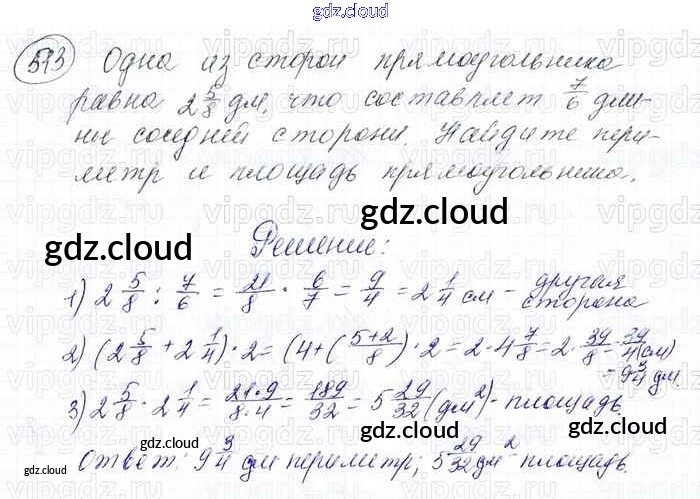 gdz.cloud
573 Одна из сторон прямоугольника
равна 2 5/8 дм, что составляет 7/6 дли-
ны соседней стороны. Найдите пери-
метр и площадь прямоугольника.
gdz.cloud
gdz.cloud
Решение:
1) 2 5/8 : 7/6 = 21/8 · 6/7 = 9/4 = 2 1/4 см - другая
сторона
2) (2 5/8 + 2 1/4) · 2 = (4 + (5+2/8) · 2 = 2 · 4 7/8 = 2 · 39/8 = 39/4 (см)
= 9 3/4 дм
3) 2 5/8 · 2 1/4 = 21·9/8·4 = 189/32 = 5 29/32 (дм²) - площадь.
gdz.cloud
gdz.cloud
Ответ: 9 3/4 дм периметр; 5 29/32 дм² площадь.
gdz.cloud
gdz.cloud